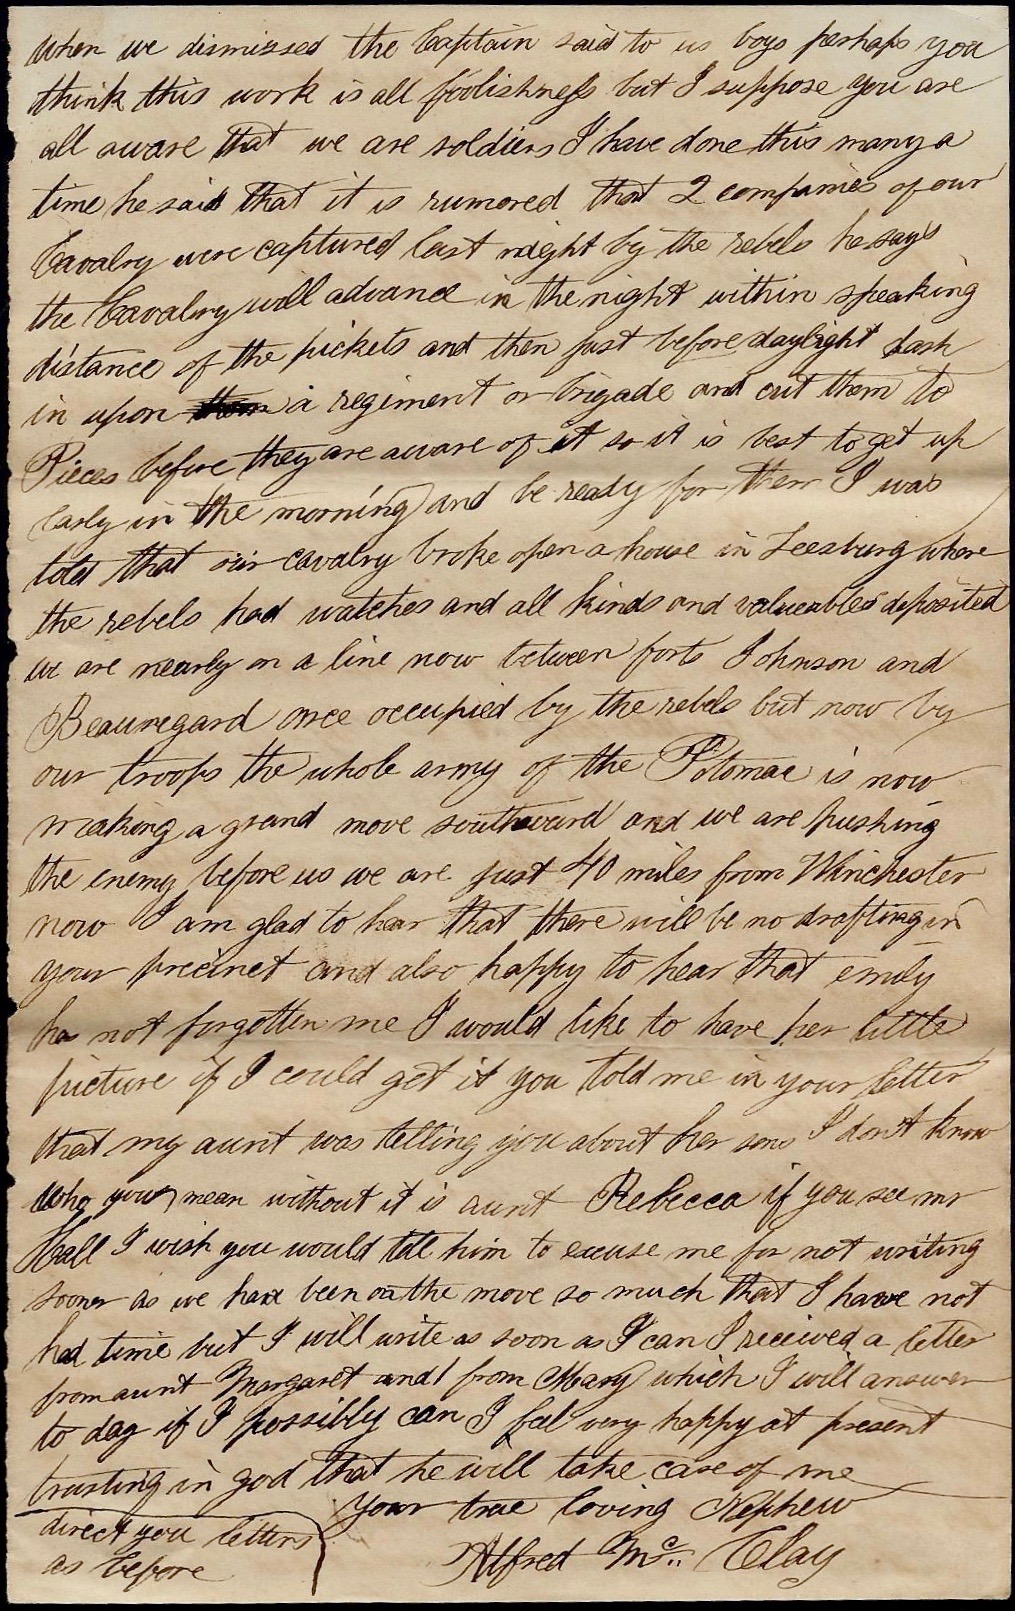 when we dismissed the Captain said to us boys perhaps you
think this work is all foolishness but I suppose you are
all aware that we are soldiers I have done this many a
time he said that it is rumored that 2 companies of our
Cavalry were captured last night by the rebels he says
the Cavalry will advance in the night within speaking
distance of the pickets and then just before daylight dash
in upon them a regiment or brigade and cut them to
Pieces before they are aware of it so it is best to get up
early in the morning and be ready for them I was
told that our cavalry broke open a house in Leesburg where
the rebels had watches and all kinds and valueables deposited
we are nearly on a line now between forts Johnson and
Beauregard once occupied by the rebels but now by
our troops the whole army of the Potomac is now
making a grand move southward and we are pushing
the enemy before us we are just 40 miles from Winchester
now I am glad to hear that there will be no drafting in
your precinct and also happy to hear that emily
has not forgotten me I would like to have her little
picture if I could get it you told me in your letter
that my aunt was telling you about her sons I don't know
who you mean without it is aunt Rebecca if you see mr
Hall I wish you would tell him to excuse me for not writing
sooner as we have been on the move so much that I have not
had time but I will write as soon as I can I received a letter
from aunt Margaret and 1 from Mary which I will answer
to day if I possibly can I feel very happy at present
trusting in god that he will take care of me
your true loving Nephew
direct you letters
as before
Alfred Mc. Clay